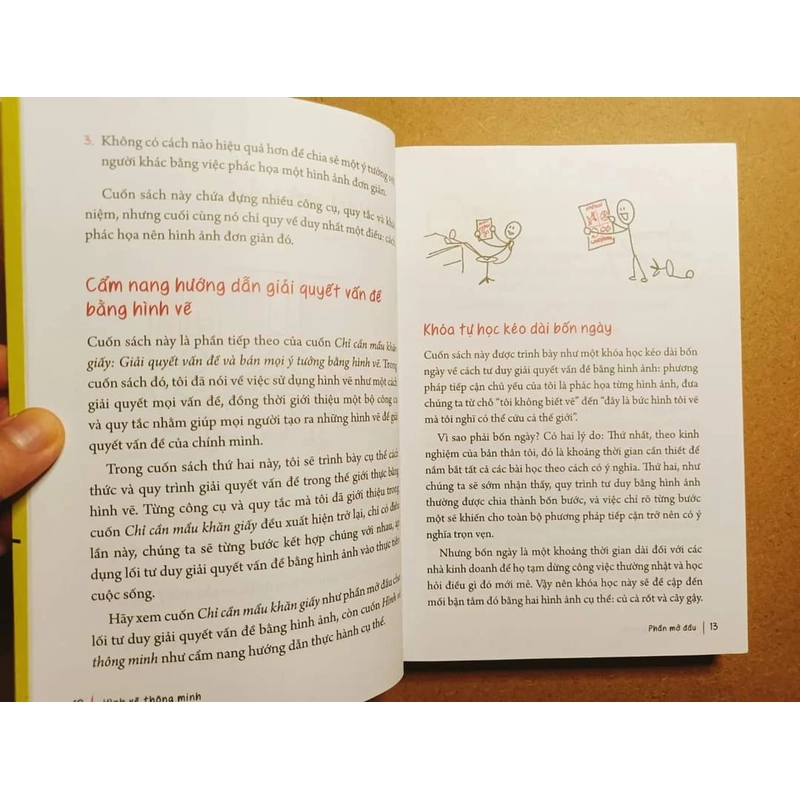 3. Không có cách nào hiệu quả hơn để chia sẻ một ý tưởng với
người khác bằng việc phác họa một hình ảnh đơn giản.
Cuốn sách này chứa đựng nhiều công cụ, quy tắc và khái
niệm, nhưng cuối cùng nó chỉ quy về duy nhất một điều: cách
phác họa nên hình ảnh đơn giản đó.
Cẩm nang hướng dẫn giải quyết vấn đề
bằng hình vẽ
Cuốn sách này là phần tiếp theo của cuốn Chỉ cần mẩu khăn
giấy: Giải quyết vấn đề và bán mọi ý tưởng bằng hình vẽ. Trong
cuốn sách đó, tôi đã nói về việc sử dụng hình vẽ như một cách
giải quyết mọi vấn đề, đồng thời giới thiệu một bộ công cụ
và quy tắc nhằm giúp mọi người tạo ra những hình vẽ để giải
quyết vấn đề của chính mình.
Trong cuốn sách thứ hai này, tôi sẽ trình bày cụ thể cách
thức và quy trình giải quyết vấn đề trong thế giới thực bằng
hình vẽ. Từng công cụ và quy tắc mà tôi đã giới thiệu trong
cuốn Chỉ cần mẩu khăn giấy đều xuất hiện trở lại, chỉ có điều
lần này, chúng ta sẽ từng bước kết hợp chúng với nhau, áp
dụng lối tư duy giải quyết vấn đề bằng hình ảnh vào thực tiễn
cuộc sống.
Hãy xem cuốn Chỉ cần mẩu khăn giấy như phần mở đầu cho
lối tư duy giải quyết vấn đề bằng hình ảnh, còn cuốn Hình vẽ
thông minh như cẩm nang hướng dẫn thực hành cụ thể.
Hình vẽ thông minh
Khóa tự học kéo dài bốn ngày
Cuốn sách này được trình bày như một khóa học kéo dài bốn
ngày về cách tư duy giải quyết vấn đề bằng hình ảnh: phương
pháp tiếp cận chủ yếu của tôi là phác họa từng hình ảnh, đưa
chúng ta từ chỗ “tôi không biết vẽ” đến “đây là bức hình tôi vẽ
mà tôi nghĩ có thể cứu cả thế giới”.
Vì sao phải bốn ngày? Có hai lý do: Thứ nhất, theo kinh
nghiệm của bản thân tôi, đó là khoảng thời gian cần thiết để
nắm bắt tất cả các bài học theo cách có ý nghĩa. Thứ hai, như
chúng ta sẽ sớm nhận thấy, quy trình tư duy bằng hình ảnh
thường được chia thành bốn bước, và việc chỉ rõ từng bước
một sẽ khiến cho toàn bộ phương pháp tiếp cận trở nên có ý
nghĩa trọn vẹn.
Nhưng bốn ngày là một khoảng thời gian dài đối với các
nhà kinh doanh để họ tạm dừng công việc thường nhật và học
hỏi điều gì đó mới mẻ. Vậy nên khóa học này sẽ đề cập đến
mối bận tâm đó bằng hai hình ảnh cụ thể: củ cà rốt và cây gậy.
Phần mở đầu | 13